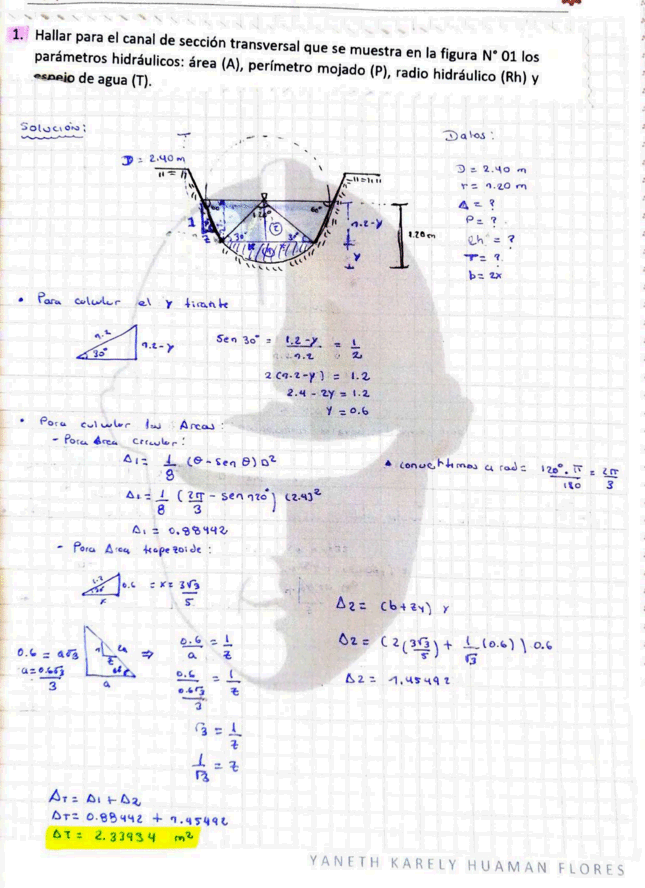 1. Hallar para el canal de sección transversal que se muestra en la figura N° 01 los
parámetros hidráulicos: área (A), perímetro mojado (P), radio hidráulico (Rh) y
espejo de agua (T).
Solución:
Datos:
D = 2.40 m
D = 2.40 m
r = 1.20 m
A = ?
P = ?
Rh = ?
T = ?
b = 2x
60°
120°
60°
1
z
30°
30°
②
①
1.2-y
y
1.20m
• Para calcular el y tirante
1.2
30°
1.2-y
Sen 30° = 1.2-y / 1.2 = 1/2
2(1.2-y) = 1.2
2.4 - 2y = 1.2
y = 0.6
• Para calcular las Areas:
- Para Area circular:
A1 = 1/8 (θ - sen θ) D²
▲ convertimos a rad = 120°.π/180 = 2π/3
A1 = 1/8 (2π/3 - sen 120°) (2.4)²
A1 = 0.88442
- Para Area trapezoide:
1.2
30°
0.6
x
= x = 3√3/5
A2 = (b+zy) y
0.6 = a√3
a = 0.6√3/3
1
2a
z
60°
a
⇒
0.6/a = 1/z
A2 = (2(3√3/5) + 1/√3 (0.6)) 0.6
0.6 / (0.6√3/3) = 1/z
A2 = 1.45492
√3 = 1/z
1/√3 = z
AT = A1 + A2
AT = 0.88442 + 1.45492
AT = 2.33934 m²
YANETH KARELY HUAMAN FLORES